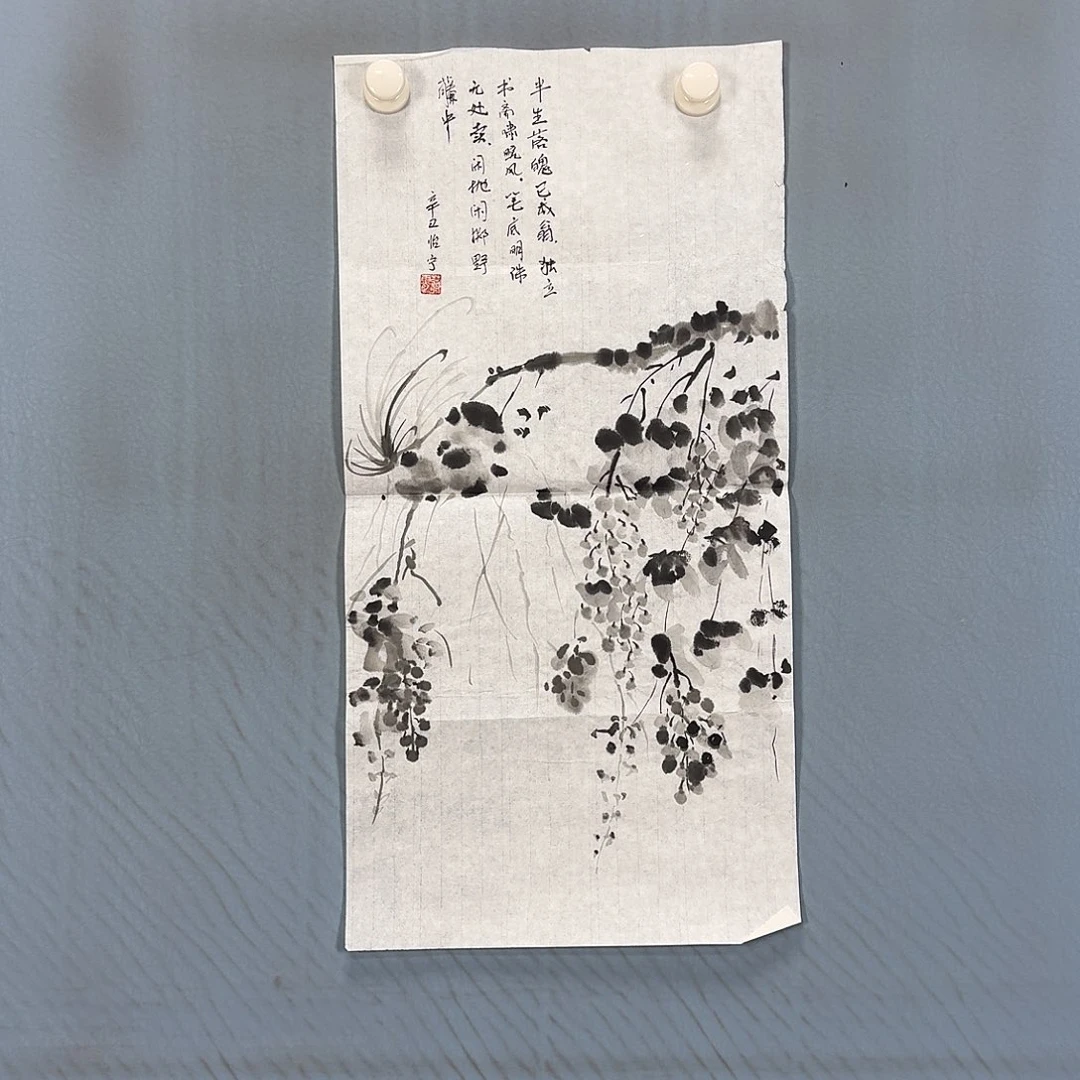 半生落魄已成翁，独立
书斋啸晚风，笔底明珠
无处卖，闲抛闲掷野
藤中
辛丑怡宁